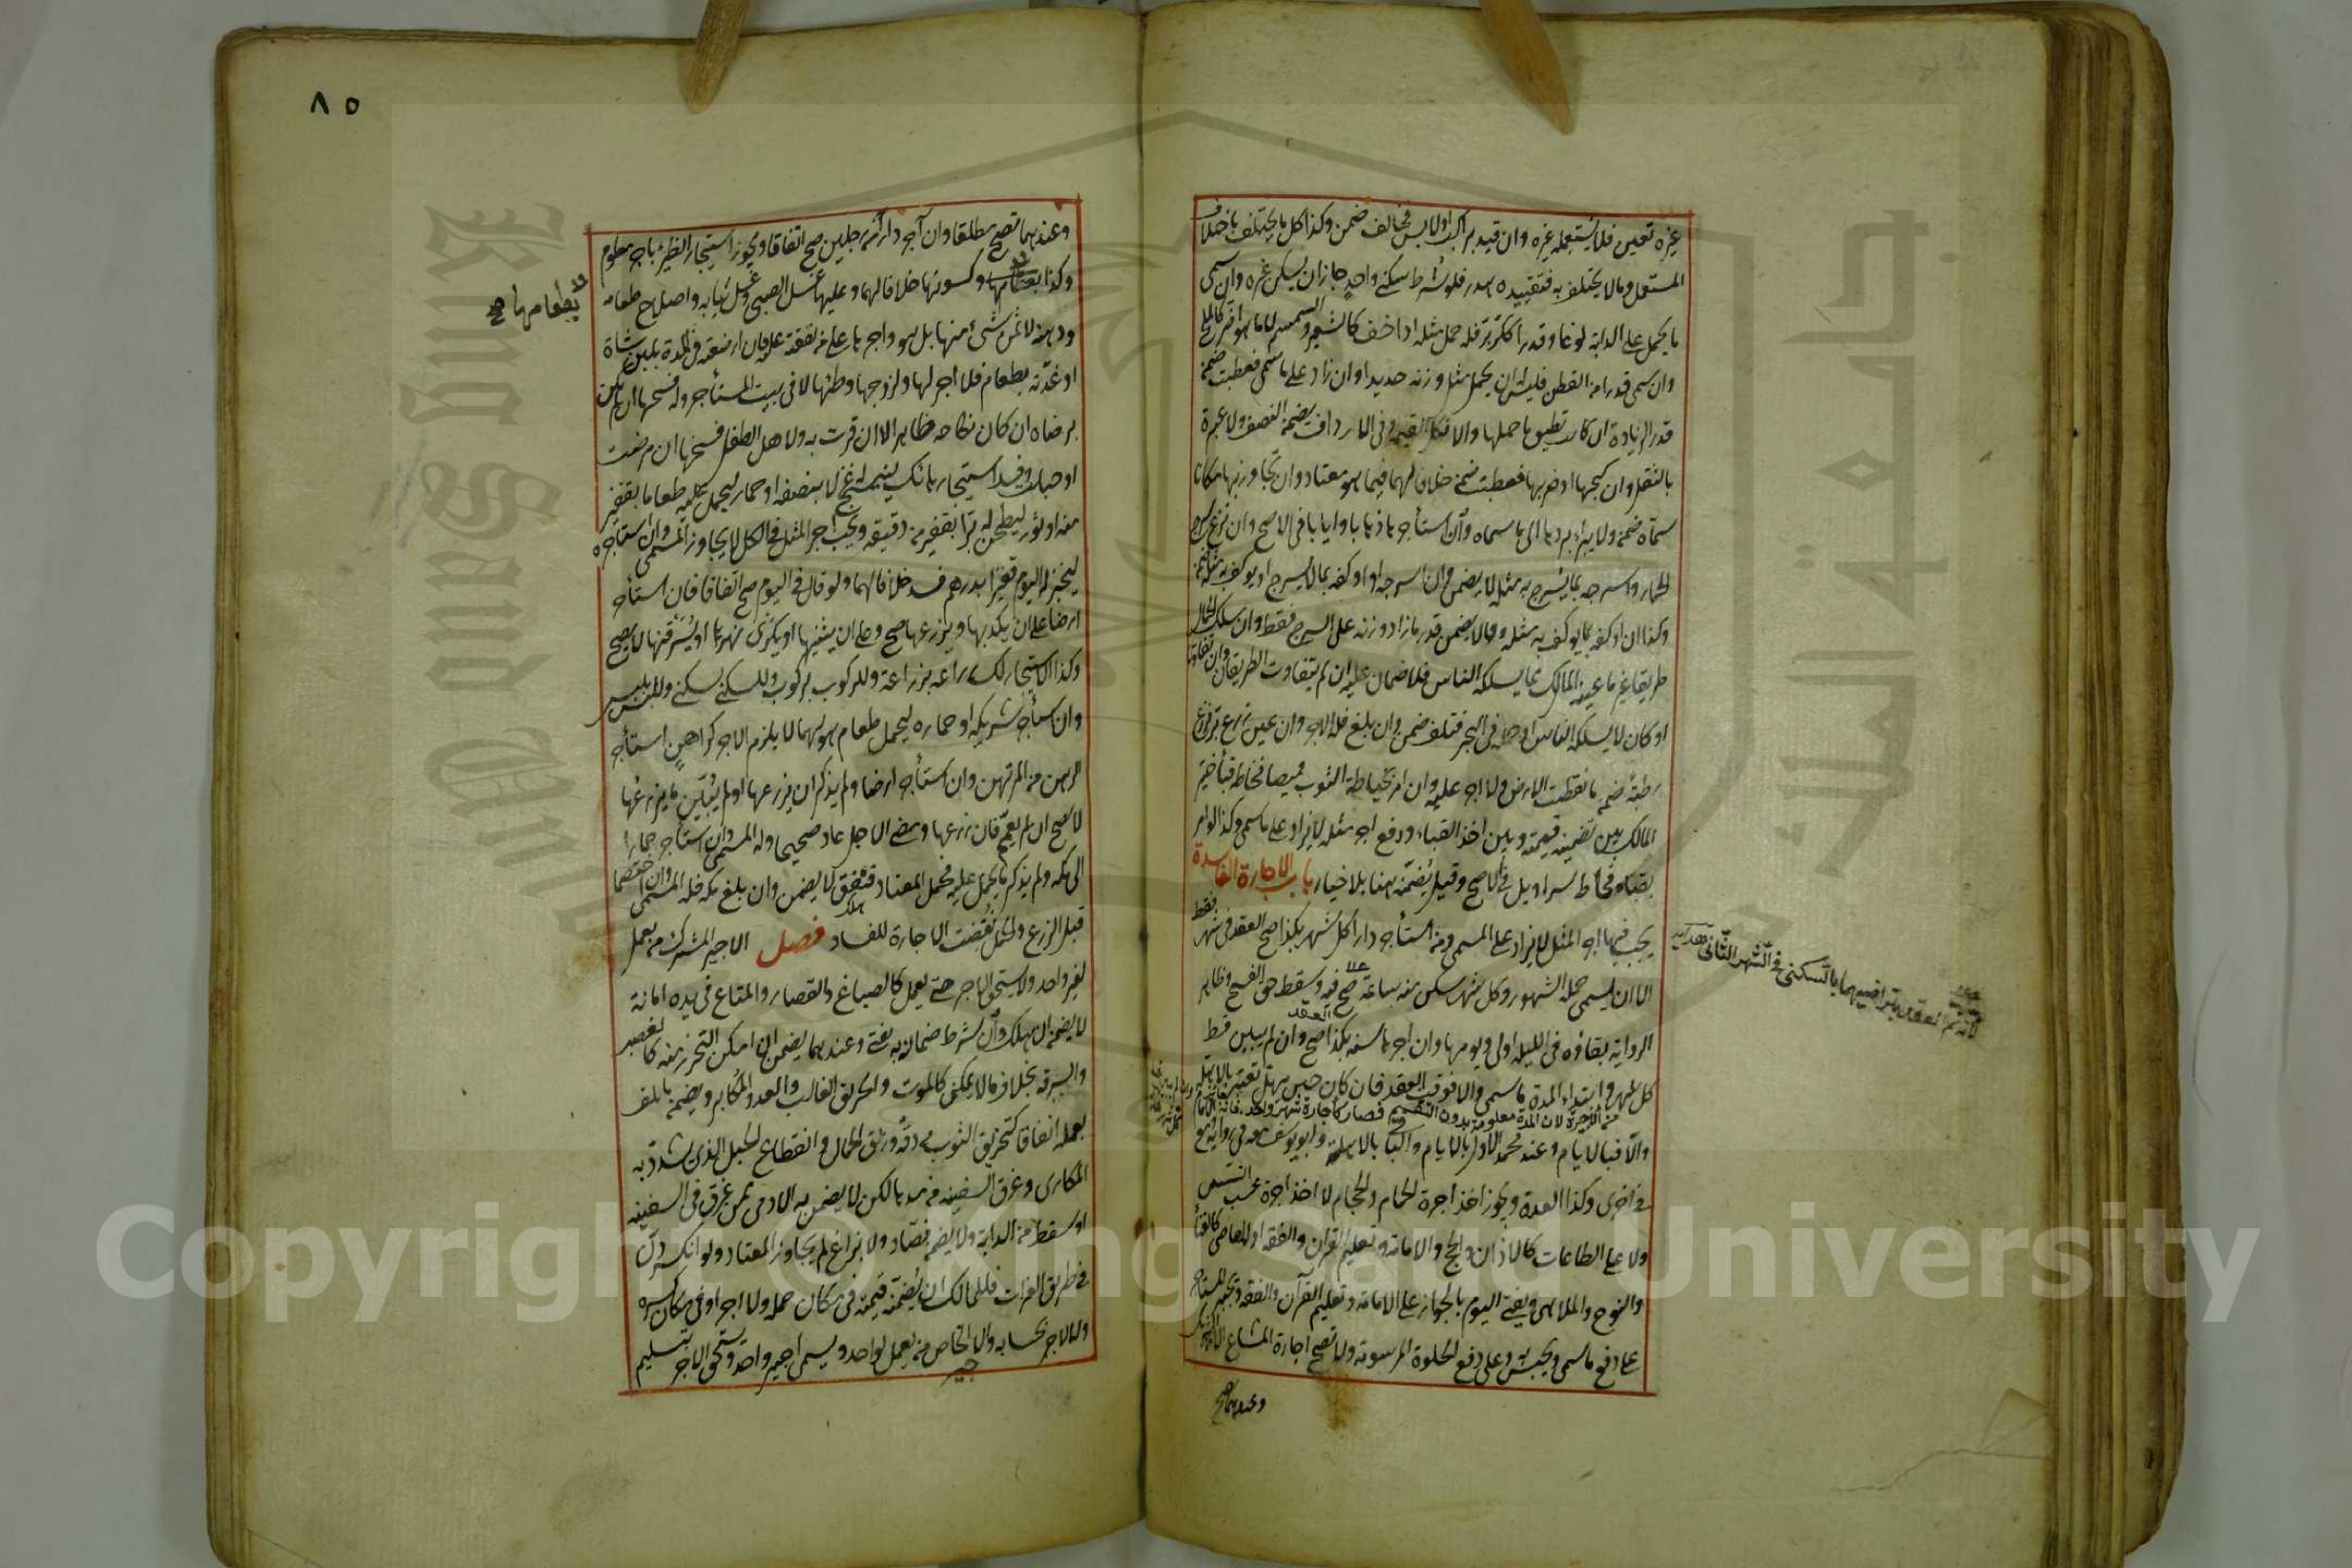 غيره تعين فلا يستعمله غيره وان قيد براكب او لابس فخالف ضمن وكذا كل ما يختلف باختلاف
المستعمل وما لا يختلف به فتقييده هدر فلو شرط سكنى واحد جاز ان يسكن غيره وان سمى
ما يحمل على الدابة نوعا وقدرا ككر بر فله حمل مثله او اخف كالشعير والسمسم لا ما هو اضر كالملح
وان سمى قدرا من القطن فليس له ان يحمل مثل وزنه حديدا وان زاد على ما سمى فعطبت ضمن
قدر الزيادة ان كانت تطيق ما حملها والا فكل القيمة وفى الارداف يضمن النصف ولا عبرة
بالثقل وان كبحها او ضربها فعطبت ضمن خلافا لهما فيما هو معتاد وان تجاوز بها مكانا
سماه ضمن ولا يبراء بردها الى ما سماه وان استأجرها ذهابا وايابا فى الاصح وان نزع سرج
الحمار واسرجه بما يسرج به مثله لا يضمن وان اسرجه او اوكفه بما لا يسرج او يوكف به مثله ضمن
وكذا ان اوكفه بما يوكف به مثله وقالا يضمن قدر ما زاد وزنه على السرج فقط وان سلك الحمال
طريقا غير ما عينه المالك مما يسلكه الناس فلا ضمان عليه ان لم يتفاوت الطريقان وان تفاوتا
او كان لا يسلكه الناس او حمله فى البحر فتلف ضمن وان بلغ فله الاجر وان عين زرع بر فزرع
رطبة ضمن ما نقصت الارض ولا اجر عليه وان امر بخياطة الثوب قميصا فخاط قباء خير
المالك بين تضمينه قيمته وبين اخذ القباء ودفع اجر مثله لا يزاد على ما سمى وكذا لو امر
بقباء فخاط سراويل فى الاصح وقيل يضمنه هنا بلا خيار باب الاجارة الفاسدة
يجب فيها اجر المثل لا يزاد على المسمى ومن استأجر دارا كل شهر بكذا صح العقد فى شهر فقط
الا ان يسمى جملة الشهور وكل شهر سكن منه ساعة صح فيه وسقط حق الفسخ وظاهر
الرواية بقاؤه فى الليلة اولى ويومها وان اجرها سنة بكذا صح وان لم يبين قسط
كل شهر وابتداء المدة ما سمى والا فوقت العقد فان كان حين يهل تعتبر بالاهلة
والا فبالايام وعند محمد الاول بالايام والباقى بالاهلة وابو يوسف معه فى رواية ومع
فى اخرى وكذا العدة ويجوز اخذ اجرة الحمام والحجام لا اخذ اجرة عسب التيس
ولا على الطاعات كالاذان والحج والامامة وتعليم القرآن والفقه او المعاصى كالغناء
والنوح والملاهى ويفتى اليوم بالجواز على الامامة وتعليم القرآن والفقه ويجبر المستأجر
على دفع ما سمى ويحبس به وعلى دفع الحلوة المرسومة ولا تصح اجارة المشاع الا من الشريك
وعندهما تصح
لانه تم العقد بتراضيهما بالسكنى فى الشهر الثانى هداية
٨٥
وعندهما تصح مطلقا وان آجر دارا من رجلين صح اتفاقا ويجوز استيجار الظئر باجر معلوم
وكذا بطعامها وكسوتها خلافا لهما وعليها غسل الصبى وغسل ثيابه واصلاح طعامه
ودهنه لا ثمن شئ منها بل هو واجرها على من نفقته عليه فان ارضعته فى المدة بلبن شاة
او غذته بطعام فلا اجر لها ولزوجها وطئها لا فى بيت المستأجر وله فسخها ان لم تكن
برضاه ان كان نكاحه ظاهرا لا ان اقرت به ولاهل الطفل فسخها ان مرضت
او حبلت وفسد استيجار حائك لينسج له غزلا بنصفه او حمار ليحمل عليه طعاما بقفيز
منه او ثور ليطحن له برا بقفيز من دقيقه ويجب اجر المثل فى الكل لا يجاوز المسمى وان استأجره
ليخبز له اليوم قفيزا بدرهم فسد خلافا لهما ولو قال فى اليوم صح اتفاقا فان استأجر
ارضا على ان يكربها ويزرعها صح وعلى ان يثنيها او يكرى نهرها او يسرقنها لا يصح
وكذا الاستيجار للزراعة بزراعة وللركوب بركوب وللسكنى بسكنى وللبس بلبس
وان استأجر شريكه او حماره ليحمل طعام هو لهما لا يلزم الاجر كراهن استأجر
الرهن من المرتهن وان استأجر ارضا ولم يذكر ان يزرعها او لم يبين ما يزرعها
لا يصح ان لم يعمم فان زرعها ومضى الاجل عاد صحيحا وله المسمى وان استأجر حمارا
الى مكة ولم يذكر ما يحمل عليه فحمل المعتاد فنفق لا يضمن وان بلغ مكة فله المسمى وان اختصما
قبل الزرع والحمل نقضت الاجارة للفساد فصل الاجير المشترك من يعمل
لغير واحد ولا يستحق الاجر حتى يعمل كالصباغ والقصار والمتاع فى يده امانة
لا يضمن ان هلك وان شرط ضمانه به يفتى وعندهما يضمن ان امكن التحرز منه كالغصب
والسرقة بخلاف ما لا يمكن كالموت والحريق الغالب والعدو المكابر ويضمن ما تلف
بعمله اتفاقا كتخريق الثوب من دقه وزلق الحمال وانقطاع الحبل الذى شد به
المكارى وغرق السفينة من مدها لكن لا يضمن به الادمى ممن غرق فى السفينة
او سقط من الدابة ولا يضمن فصاد ولا بزاغ لم يجاوز المعتاد ولو انكسر دن
فى طريق الفرات فللمالك ان يضمنه قيمته فى مكان حمله ولا اجر او فى مكان كسره
وله الاجر بحسابه والاجير الخاص من يعمل لواحد ويسمى اجير واحد ويستحق الاجر بتسليم
بطعامها صح